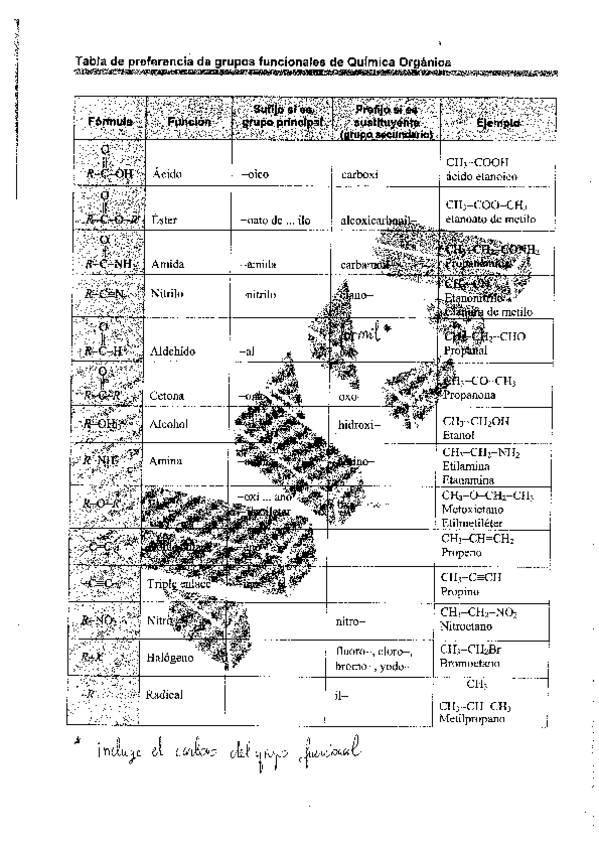 Tabla de preferencia de grupos funcionales de Química Orgánica
Fórmula Función Sufijo si es grupo principal Prefijo si es sustituyente (grupo secundario) Ejemplo
O
R–C–OH Ácido –oico carboxi CH3–COOH
ácido etanoico
O
R–C–O–R Éster –oato de ... ilo alcoxicarbonil– CH3–COO–CH3
etanoato de metilo
O
R–C–NH2 Amida –amida CH3–CH2–CONH2
Propanamida
R–C≡N Nitrilo –nitrilo ciano–
Etanonitrilo
Cianuro de metilo
O
R–C–H Aldehído –al formil * CH3–CH2–CHO
Propanal
O
Cetona oxo– CH3–CO–CH3
Propanona
R–OH Alcohol hidroxi– CH3–CH2OH
Etanol
R–NH2 Amina CH3–CH2–NH2
Etilamina
Etanamina
R–O–R –oxi ... ano CH3–O–CH2–CH3
Metoxietano
Etilmetiléter
C=C CH3–CH=CH2
Propeno
–C≡C– Triple enlace CH3–C≡CH
Propino
R–NO2 Nitro nitro– CH3–CH2–NO2
Nitroetano
R–X Halógeno fluoro–, cloro–, bromo–, yodo– CH3–CH2Br
Bromoetano
–R Radical il– CH3
CH3–CH–CH3
Metilpropano
* incluye el carbono del grupo funcional